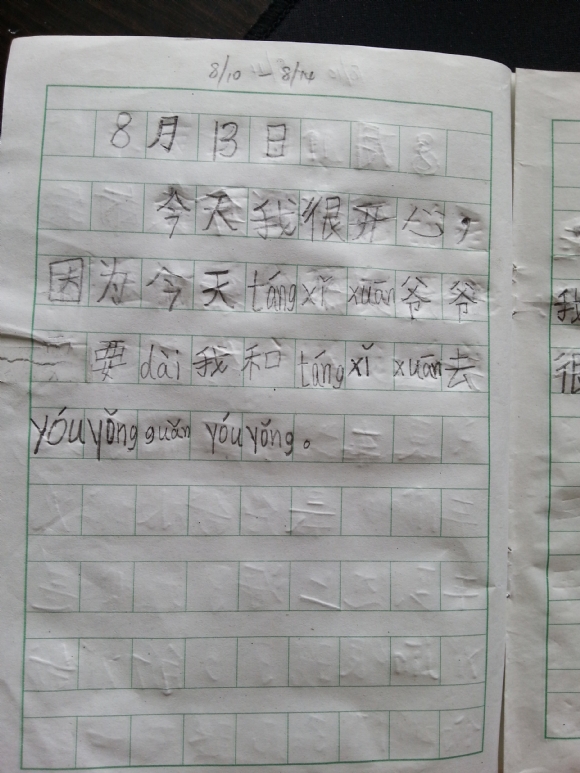 8/10 - 8/14
8月13日
今天我很开心，
因为今天tángxǐ xuān爷爷
要dài我和tángxǐ xuān去
yóuyǒngguǎn yóuyǒng。
我
很